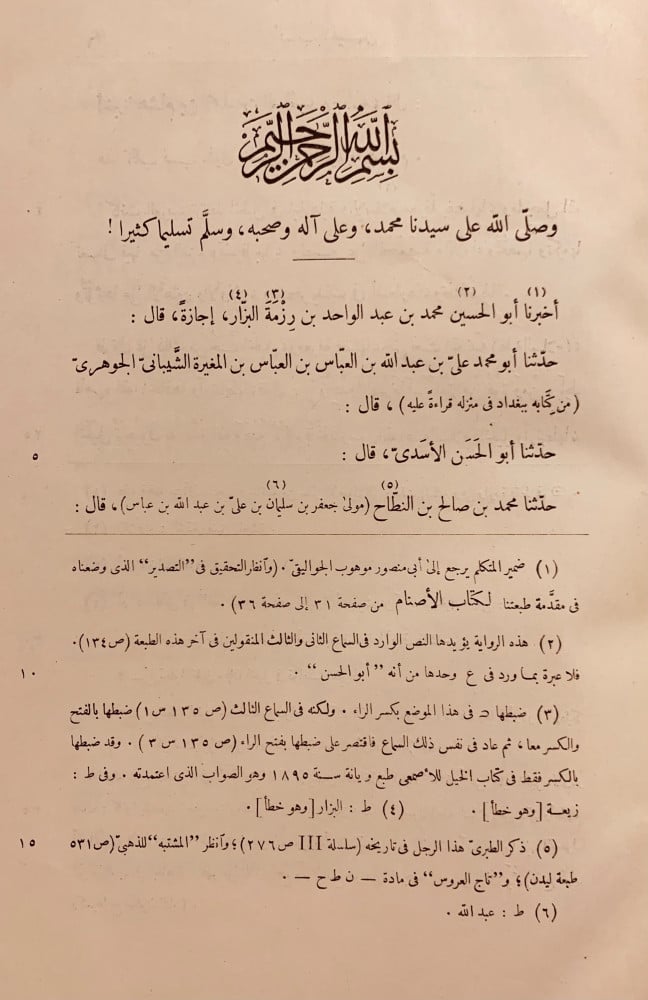 بسم الله الرحمن الرحيم
وصلّى الله على سيدنا محمد، وعلى آله وصحبه، وسلَّم تسليما كثيرا !
(١) (٢) (٣) (٤)
أخبرنا أبو الحسين محمد بن عبد الواحد بن رِزْمَةَ البزَّار، إجازةً، قال :
حدّثنا أبو محمد علىّ بن عبد الله بن العبّاس بن العبّاس بن المغيرة الشَّيبانىّ الجوهرىّ
(من كتَابه ببغداد فى منزله قراءةً عليه) ، قال :
حدّثنا أبو الحَسَن الأسَدىّ، قال : ٥
(٥) (٦)
حدّثنا محمد بن صالح بن النطّاح (مولىٰ جعفر بن سليمان بن علىّ بن عبد الله بن عباس) ، قال :
(١) ضمير المتكلم يرجع إلىٰ أبى منصور موهوب الجواليقىّ . (وٱنظر التحقيق فى "التصدير" الذى وضعناه
فى مقدَّمة طبعتنا لكتاب الأصنام من صفحة ٣١ إلى صفحة ٣٦) .
(٢) هذه الرواية يؤيدها النص الوارد فى السماع الثانى والثالث المنقولين فى آخر هذه الطبعة (ص ١٣٤).
فلا عبرة بمـا ورد فى ع وحدها من أنه "أبو الحسن" . ١٠
(٣) ضبطها حـ فى هذا الموضع بكسر الراء . ولكنه فى السماع الثالث (ص ١٣٥ س ١) ضبطها بالفتح
والكسر معا، ثم عاد فى نفس ذلك السماع فاقتصر على ضبطها بفتح الراء (ص ١٣٥ س ٣) . وقد ضبطها
بالكسر فقط فى كتاب الخيل للأصمعى طبع ويانة سنـة ١٨٩٥ وهو الصواب الذى اعتمدته . وفى ط :
زيعـة [وهو خطأ] . (٤) ط : البزار [وهو خطأ] .
(٥) ذكر الطبرىّ هذا الرجل فى تاريخه (سلسلة III ص ٢٧٦) ؛ وٱنظر "المشتبه" للذهبىّ (ص ٥٣١ ١٥
طبعة ليدن) ؛ و"تاج العروس" فى مادة — ن ط ح — .
(٦) ط : عبد الله .